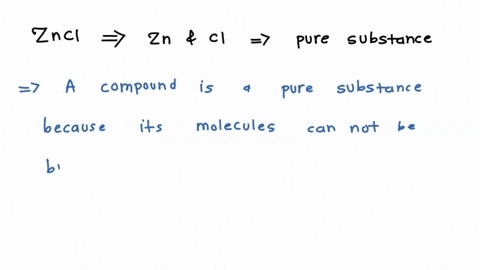 ZnCl => Zn & Cl => pure substance
=> A compound is a pure substance
because its molecules can not be